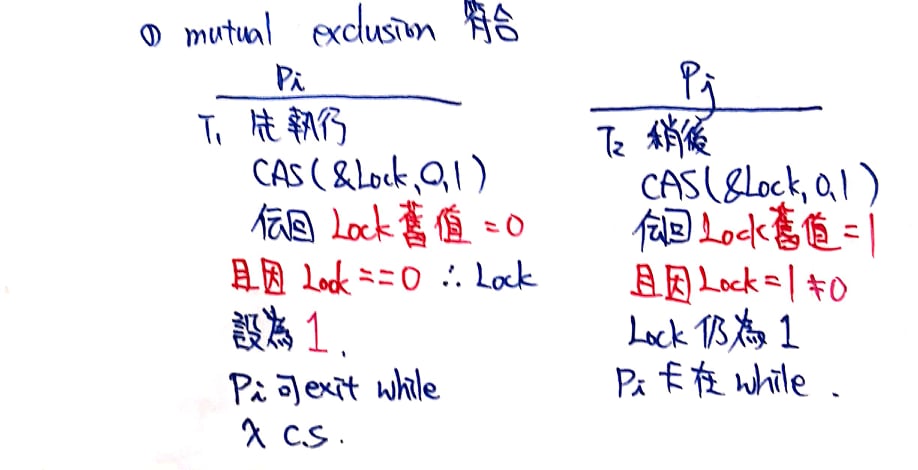 ① mutual exclusion 符合
Pi
T₁ 先執行
CAS(&Lock,0,1)
伝回 Lock舊值=0
且因 Lock==0 ∴Lock
設為 1.
Pi 可exit while
入 C.S.
Pj
T₂ 稍後
CAS(&Lock,0,1)
伝回Lock舊值=1
且因Lock=1≠0
Lock 仍為 1
Pi 卡在 while.